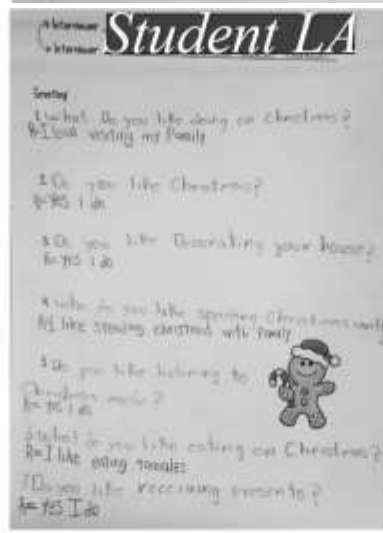 Student LA
Greeting
1 what Do you like doing on christmas?
R=I love visiting my Family
2 Do you like Christmas?
R=YES i do
3 Do you like Decorating your house?
R=YES i do
4 who do you like spening Christmas with
R=I like spending christmas with Family
5 Do you like listening to
Christmas music?
R= YES i do
what do you like eating on Christmas?
R=I like eating tamales
7 Do you like receiving presents?
R= YES I do